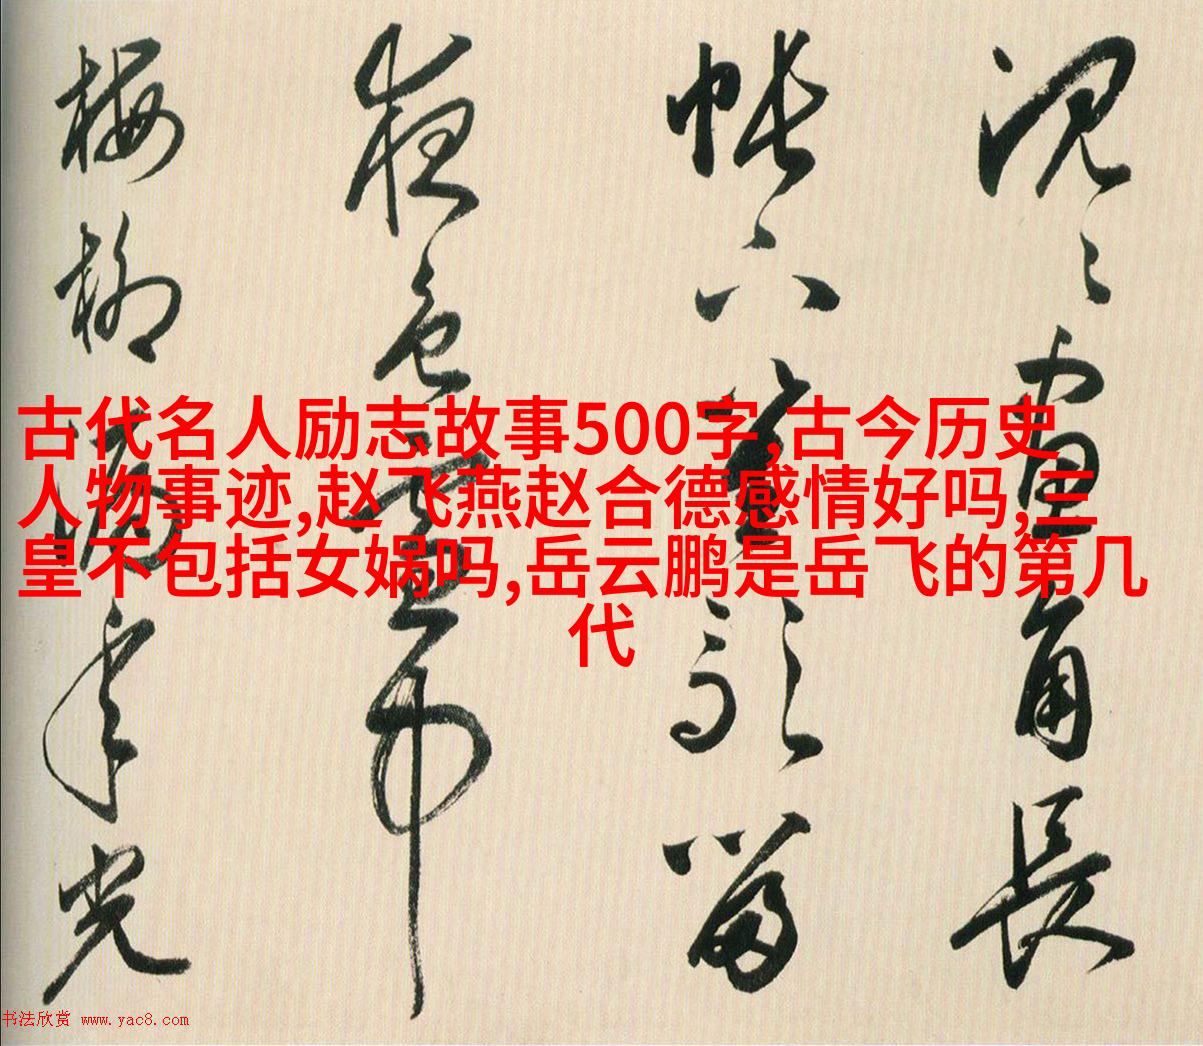 古代名人励志故事500字,古今历史
人物事迹,赵飞燕赵合德感情好吗,三
皇不包括女娲吗,岳云鹏是岳飞的第几
代
畫角長
帐六 留
夜色
梅柳 年光
书法欣赏 www.yac8.com